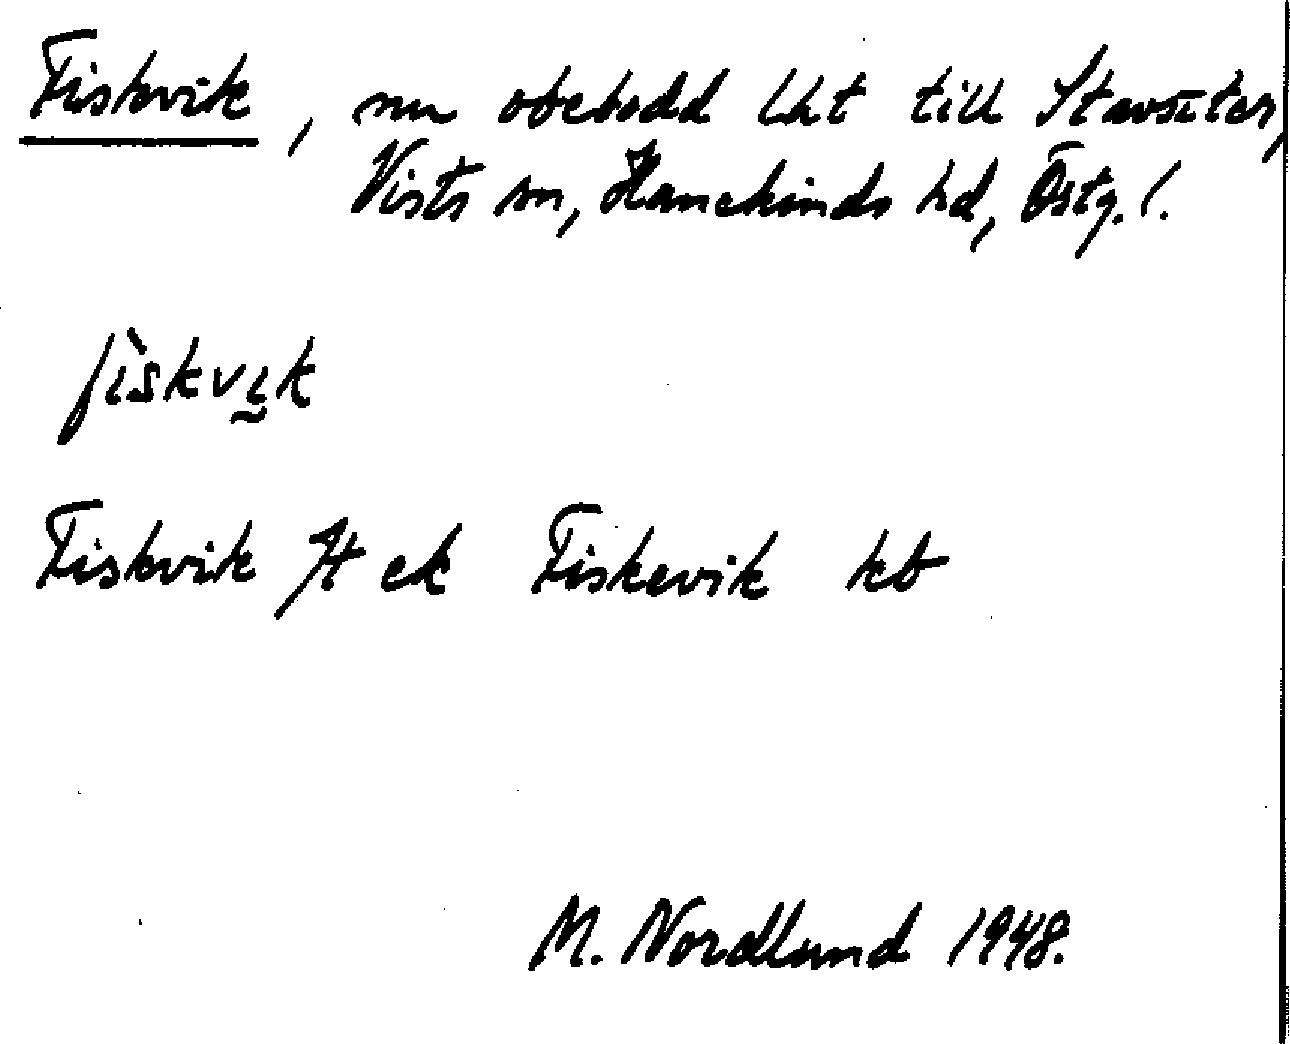 Fiskvik, nu obebodd lht till Stavsäter,
Vists sn, Hanekinds hd, Östg. l.
fìskvik
Fiskvik Jt ek Fiskevik kb
M. Nordlund 1948.